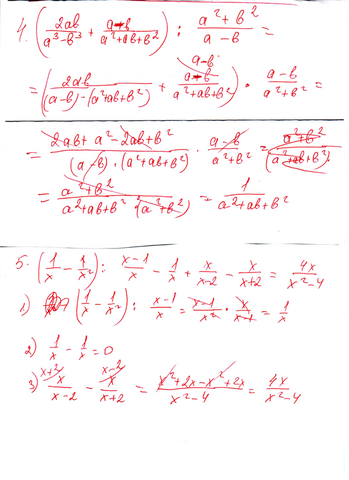 4. (2ab/(a³-b³) + (a-b)/(a²+ab+b²)) : (a²+b²)/(a-b) =
= (2ab/((a-b)-(a²+ab+b²)) + (a-b)/(a²+ab+b²)) · (a-b)/(a²+b²) =
= (2ab+a²-2ab+b²)/((a-b)·(a²+ab+b²)) · (a-b)/(a²+b²) = (a²+b²)/(a²+ab+b²)
= (a²+b²)/(a²+ab+b²(a²+b²)) = 1/(a²+ab+b²)
5. (1/x - 1/x²) : (x-1)/x - 1/x + x/(x-2) - x/(x+2) = 4x/(x²-4)
1) (1/x - 1/x²) : (x-1)/x = (x-1)/x² · x/(x-1) = 1/x
2) 1/x - 1/x = 0
3) x/(x-2) - x/(x+2) = (x²+2x-x²+2x)/(x²-4) = 4x/(x²-4)